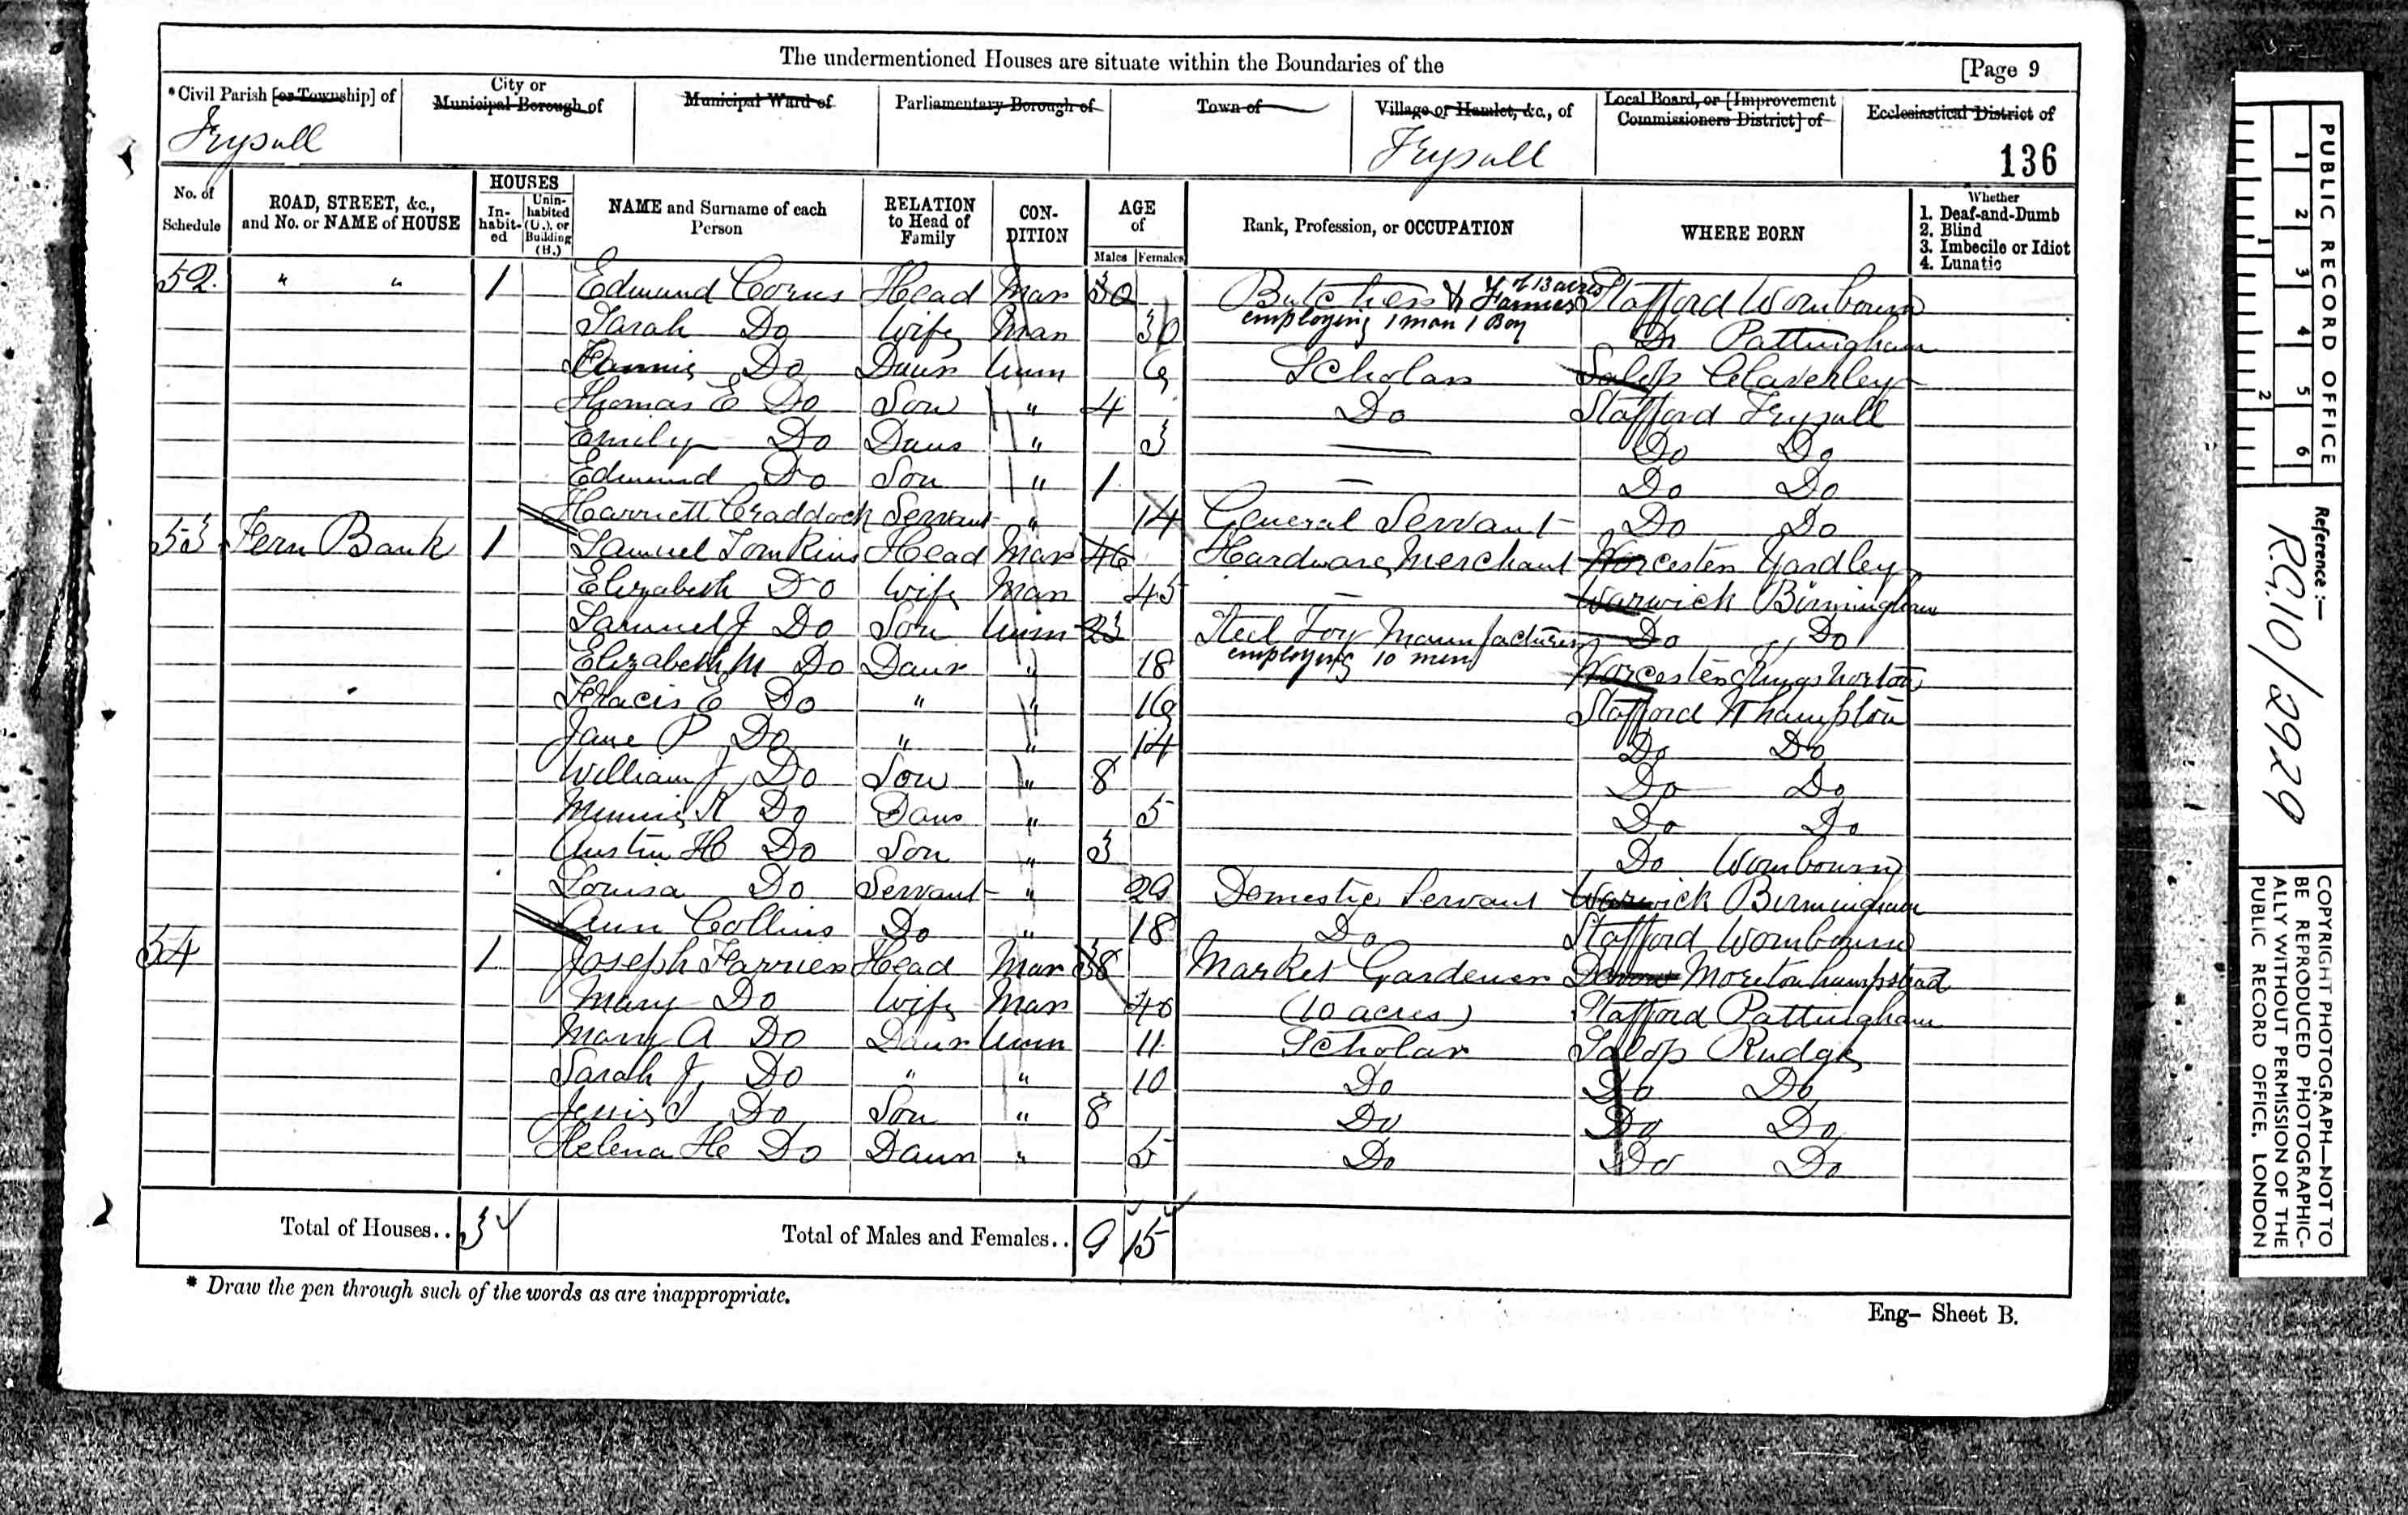 The undermentioned Houses are situate within the Boundaries of the [Page 9
*Civil Parish [or Township] of
City or Municipal Borough of
Municipal Ward of
Parliamentary Borough of
Town of
Village or Hamlet, &c., of
Local Board, or [Improvement Commissioners District] of
Ecclesiastical District of
Trysull
Trysull
136
No. of Schedule
ROAD, STREET, &c., and No. or NAME of HOUSE
HOUSES
In-habit-ed
Unin-habited (U.), or Building (B.)
NAME and Surname of each Person
RELATION to Head of Family
CON-DITION
AGE of
Males Females
Rank, Profession, or OCCUPATION
WHERE BORN
Whether
1. Deaf-and-Dumb
2. Blind
3. Imbecile or Idiot
4. Lunatic
52 " " 1 Edmund Head Mar 30 Butcher & Farmer of 13 acres Stafford Wombourn
employing 1 man 1 Boy
Sarah Do Wife Mar 30 Do Pattingham
Fannie Do Daur Unm 6 Scholar Salop Claverley
Thomas E Do Son " 4 Do Stafford Trysull
Emily Do Daur " 3 — Do Do
Edmund Do Son " 1 — Do Do
Harriett Craddock Servant " 14 General Servant Do Do
53 Fern Bank 1 Samuel Tomkins Head Mar 46 Hardware Merchant Worcester Yardley
Elizabeth Do Wife Mar 45 — Warwick Birmingham
Samuel J Do Son Unm 23 Steel Toy Manufacturer Do " Do
employing 10 men
Elizabeth M Do Daur " 18 Worcester Kingsnorton
E Do " " 16 Stafford Whampton
Jane P Do " " 14 Do Do
William J Do Son " 8 Do Do
Minnie R Do Daur " 5 Do Do
Austin H Do Son " 3 Do Wombourn
Louisa Do Servant " 29 Domestic Servant Warwick Birmingham
Ann Collins Do " 18 Do Stafford Wombourn
54 1 Joseph Farrier Head Mar 38 Market Gardener Devon Moretonhampstead
Mary Do Wife Mar 40 (10 acres) Stafford Pattingham
Mary A Do Daur Unm 11 Scholar Salop Rudge
Sarah J Do " " 10 Do Do Do
Do Son " 8 Do Do Do
Helena H Do Daur " 5 Do Do Do
Total of Houses.. 3
Total of Males and Females.. 9 15
* Draw the pen through such of the words as are inappropriate.
Eng- Sheet B.
PUBLIC RECORD OFFICE
1 2 3 4 5 6
1 2
Reference :—
RG.10/2929
COPYRIGHT PHOTOGRAPH—NOT TO BE REPRODUCED PHOTOGRAPHIC-ALLY WITHOUT PERMISSION OF THE PUBLIC RECORD OFFICE, LONDON